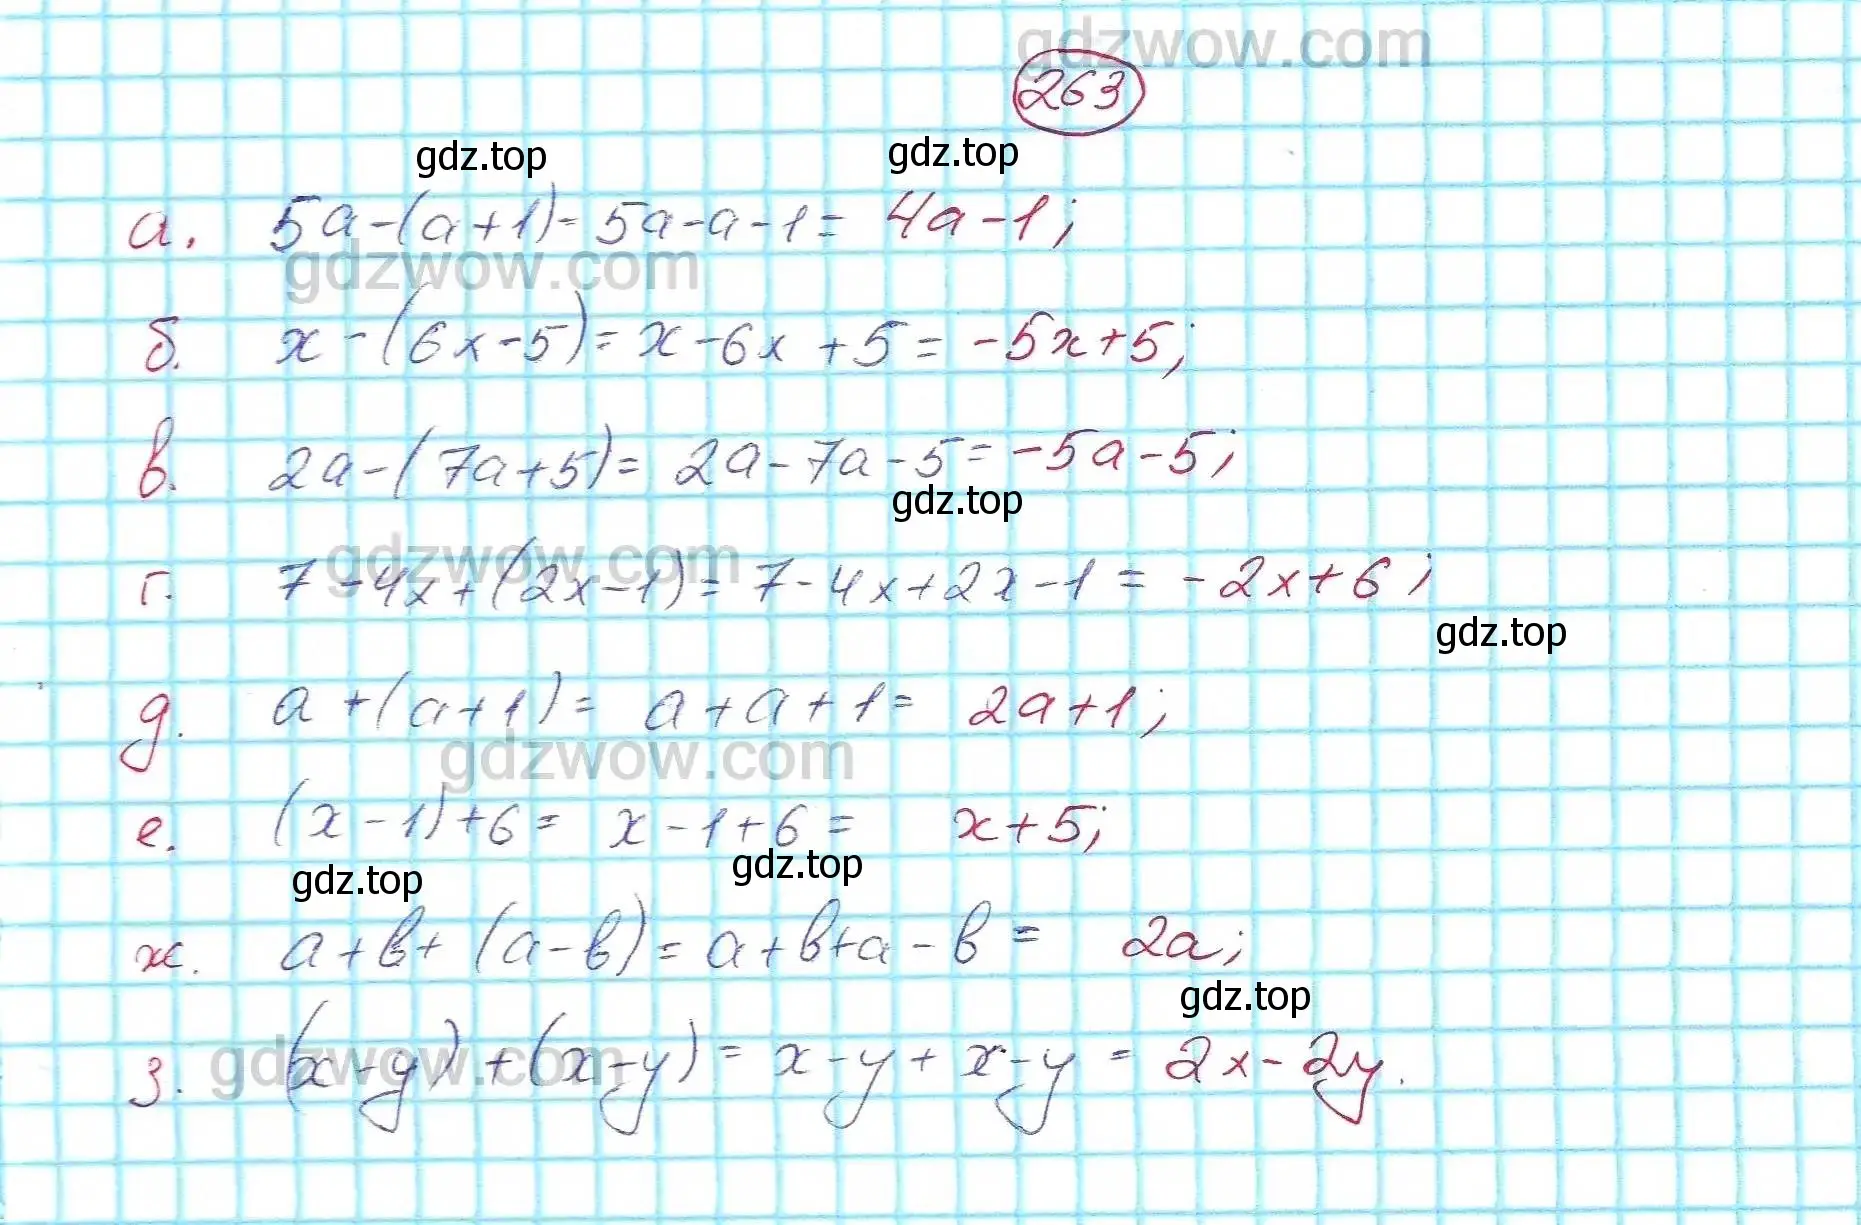 gdzwow.com
263
gdz.top gdz.top
а. 5a-(a+1)=5a-a-1= 4a-1;
gdzwow.com
б. x-(6x-5)=x-6x+5=-5x+5;
в. 2a-(7a+5)=2a-7a-5=-5a-5;
gdz.top
gdzwow.com
г. 7-4x+(2x-1)=7-4x+2x-1=-2x+6;
gdz.top
д. a+(a+1)=a+a+1=2a+1;
gdzwow.com
е. (x-1)+6=x-1+6= x+5;
gdz.top gdz.top
ж. a+b+(a-b)=a+b+a-b= 2a;
gdz.top
gdzwow.com
з. (x-y)+(x-y)=x-y+x-y=2x-2y.